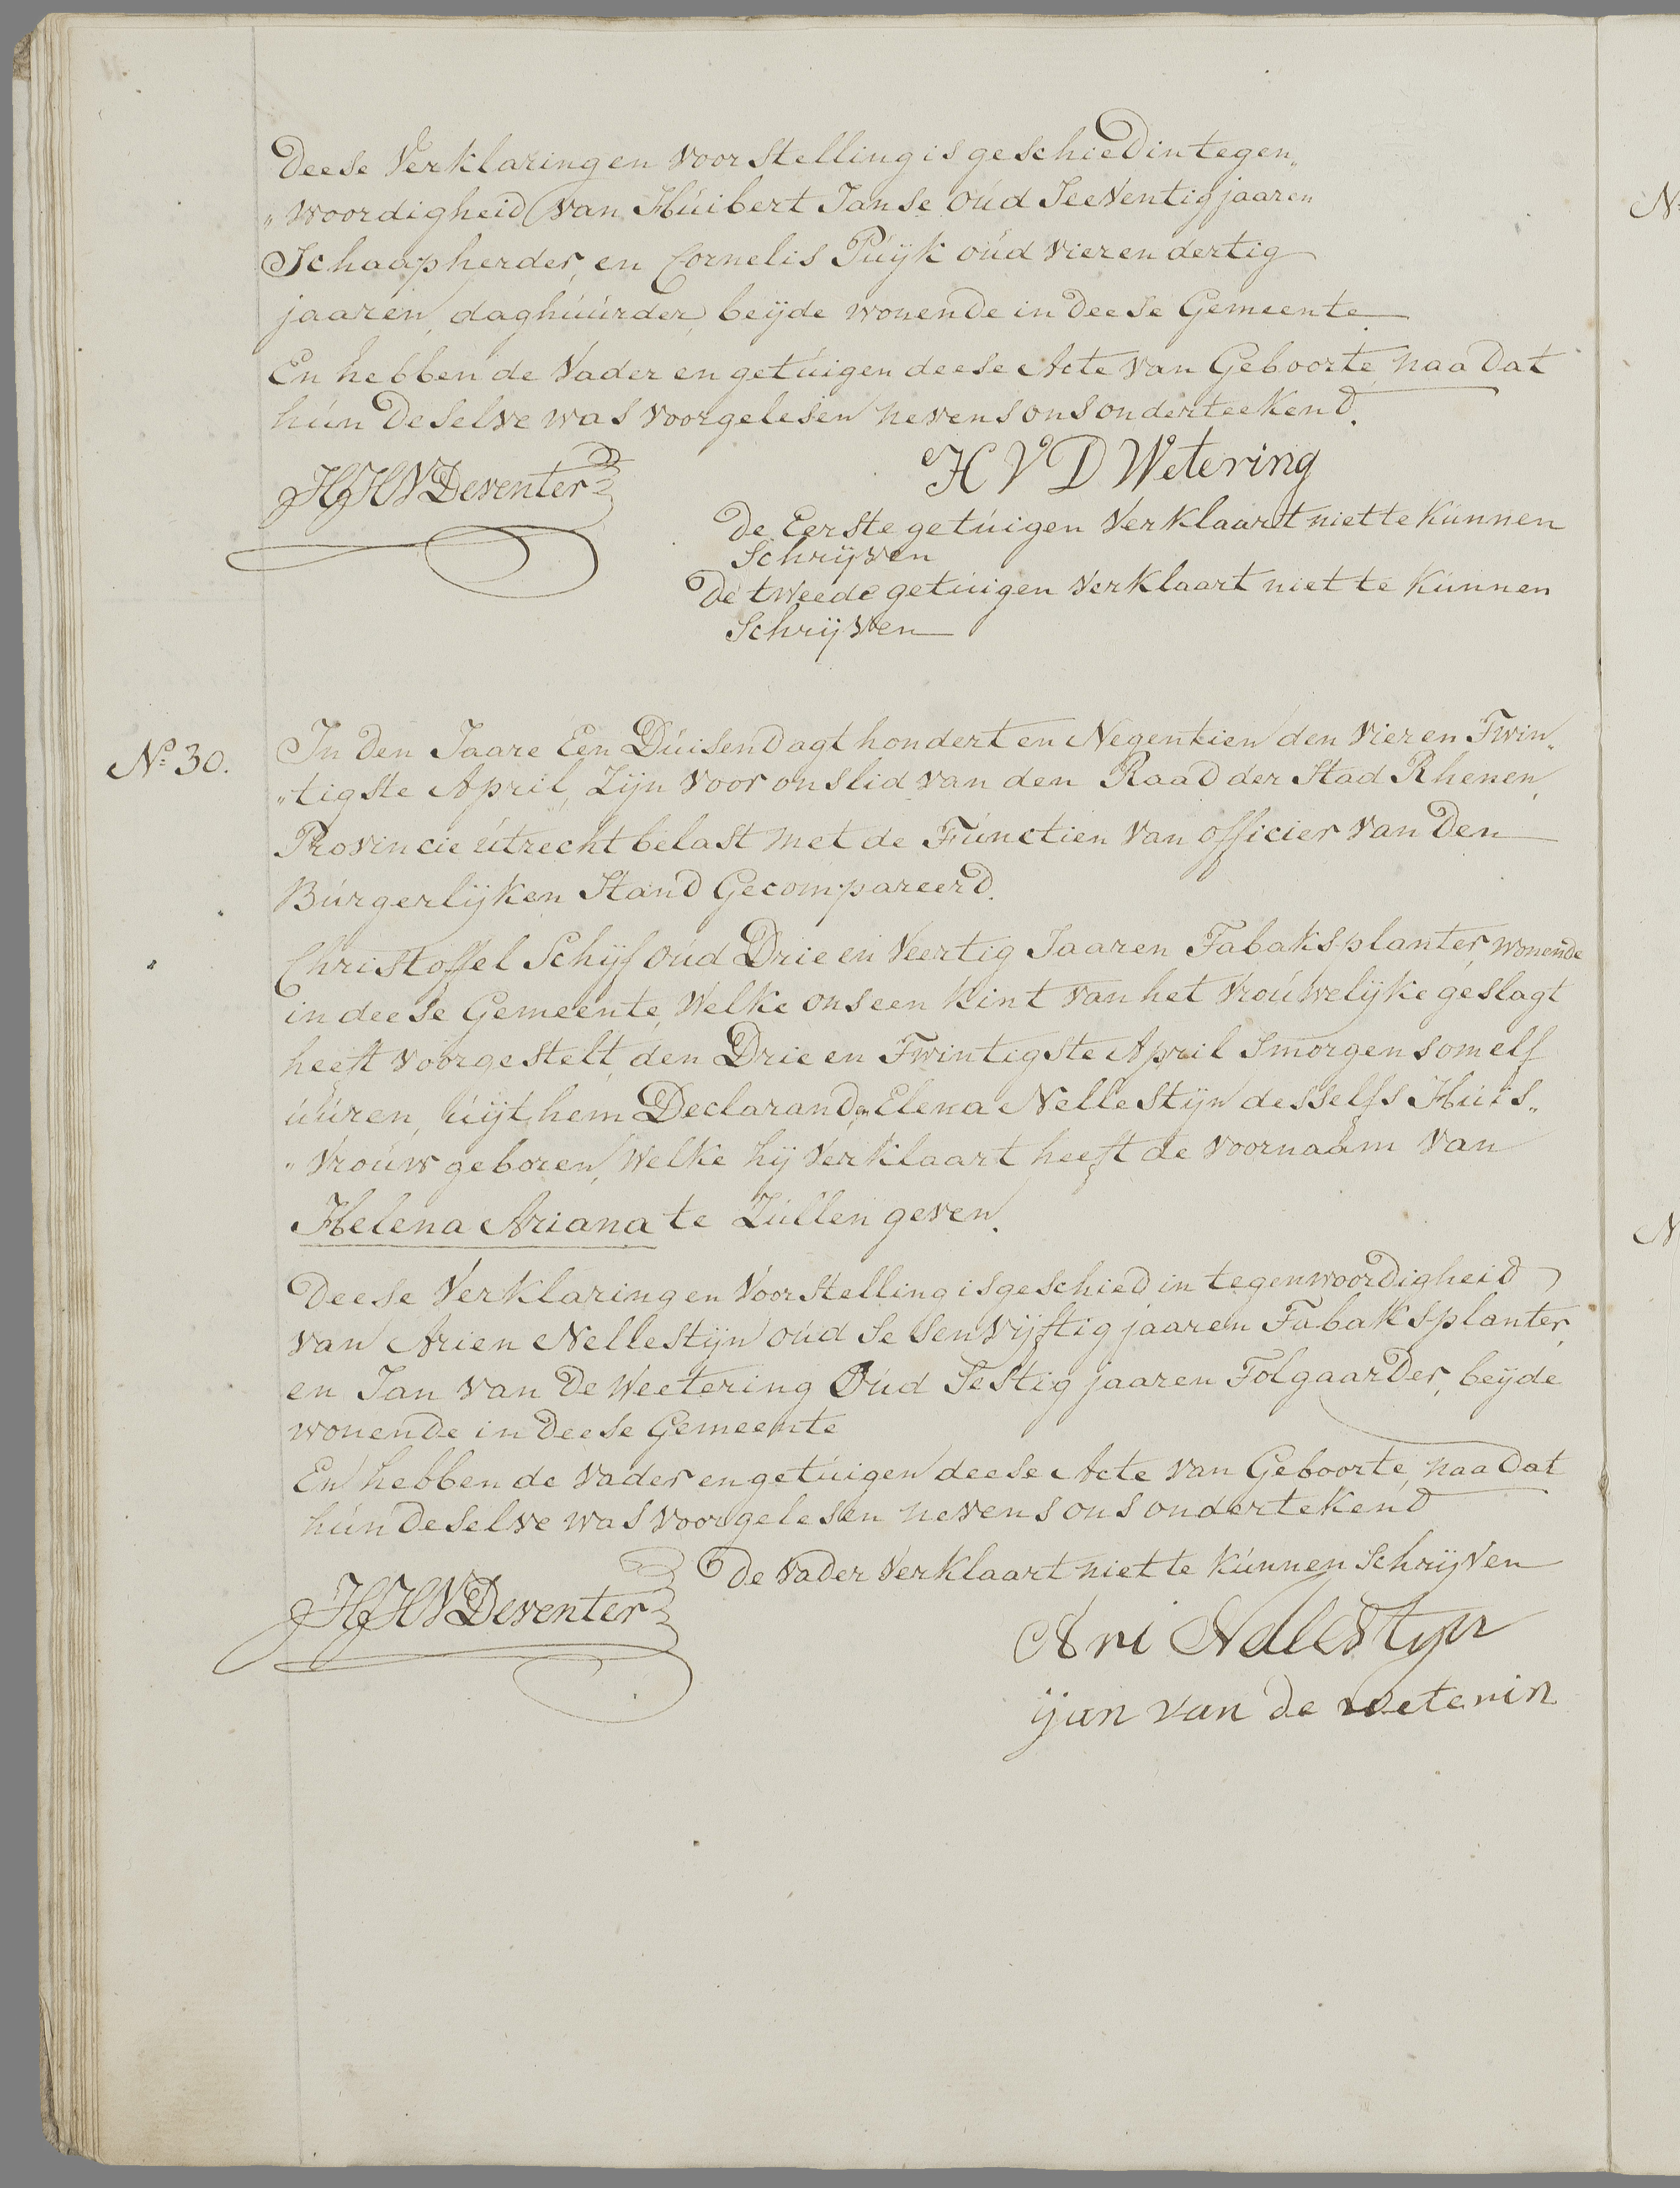 Deese Verklaring en voorstelling is geschied in tegen„
„woordigheid van Húibert Janse oúd Seeventig jaaren
Schaapherder, en Cornelis Púijk oúd vier en dertig
jaaren, daghúúrder, beijde wonende in deese Gemeente
En hebben de Vader en getúigen deese Acte van Geboorte, naa dat
hún deselve was voorgelesen nevens ons onderteekend.
HHVDeventer
H V D Wetering
De Eerste getúigen Verklaart niet te kúnnen
Schrijven
De tweede getúigen Verklaart niet te kúnnen
Schrijven
No. 30.
In den Jaare Een Dúisend agt hondert en Negentien den vier en Twin„
„tigste April, Zijn voor ons lid van den Raad der Stad Rhenen,
Provincie útrecht belast met de Fúnctien van officier van den
Búrgerlijken Stand Gecompareerd.
Christoffel Schijf oúd Drie en Veertig Jaaren Tabaksplanter, wonende
in deese Gemeente, Welke ons een kint van het Vroúwelijke geslagt
heeft voorgestelt, den Drie en Twintigste April Smorgens om elf
úúren, úijt hem Declarand en Elena Nellestijn desselfs Húis„
„vroúw geboren, Welke hij Verklaart heeft de voornaam van
Helena Ariana te Zúllen geven.
Deese Verklaring en Voorstelling is geschied in tegenwoordigheid
van Arien Nellestijn oúd Sesenvijftig jaaren Tabaksplanter,
en Jan van de Weetering Oúd Sestig jaaren Tolgaarder, beijde
wonende in deese Gemeente
En hebben de Vader en getúigen deese Acte van Geboorte, naa dat
hún deselve was voorgelesen nevens ons ondertekend
De Vader Verklaart niet te kúnnen Schrijven
HHVDeventer
Ari Nellestyn
ijan van de weterin